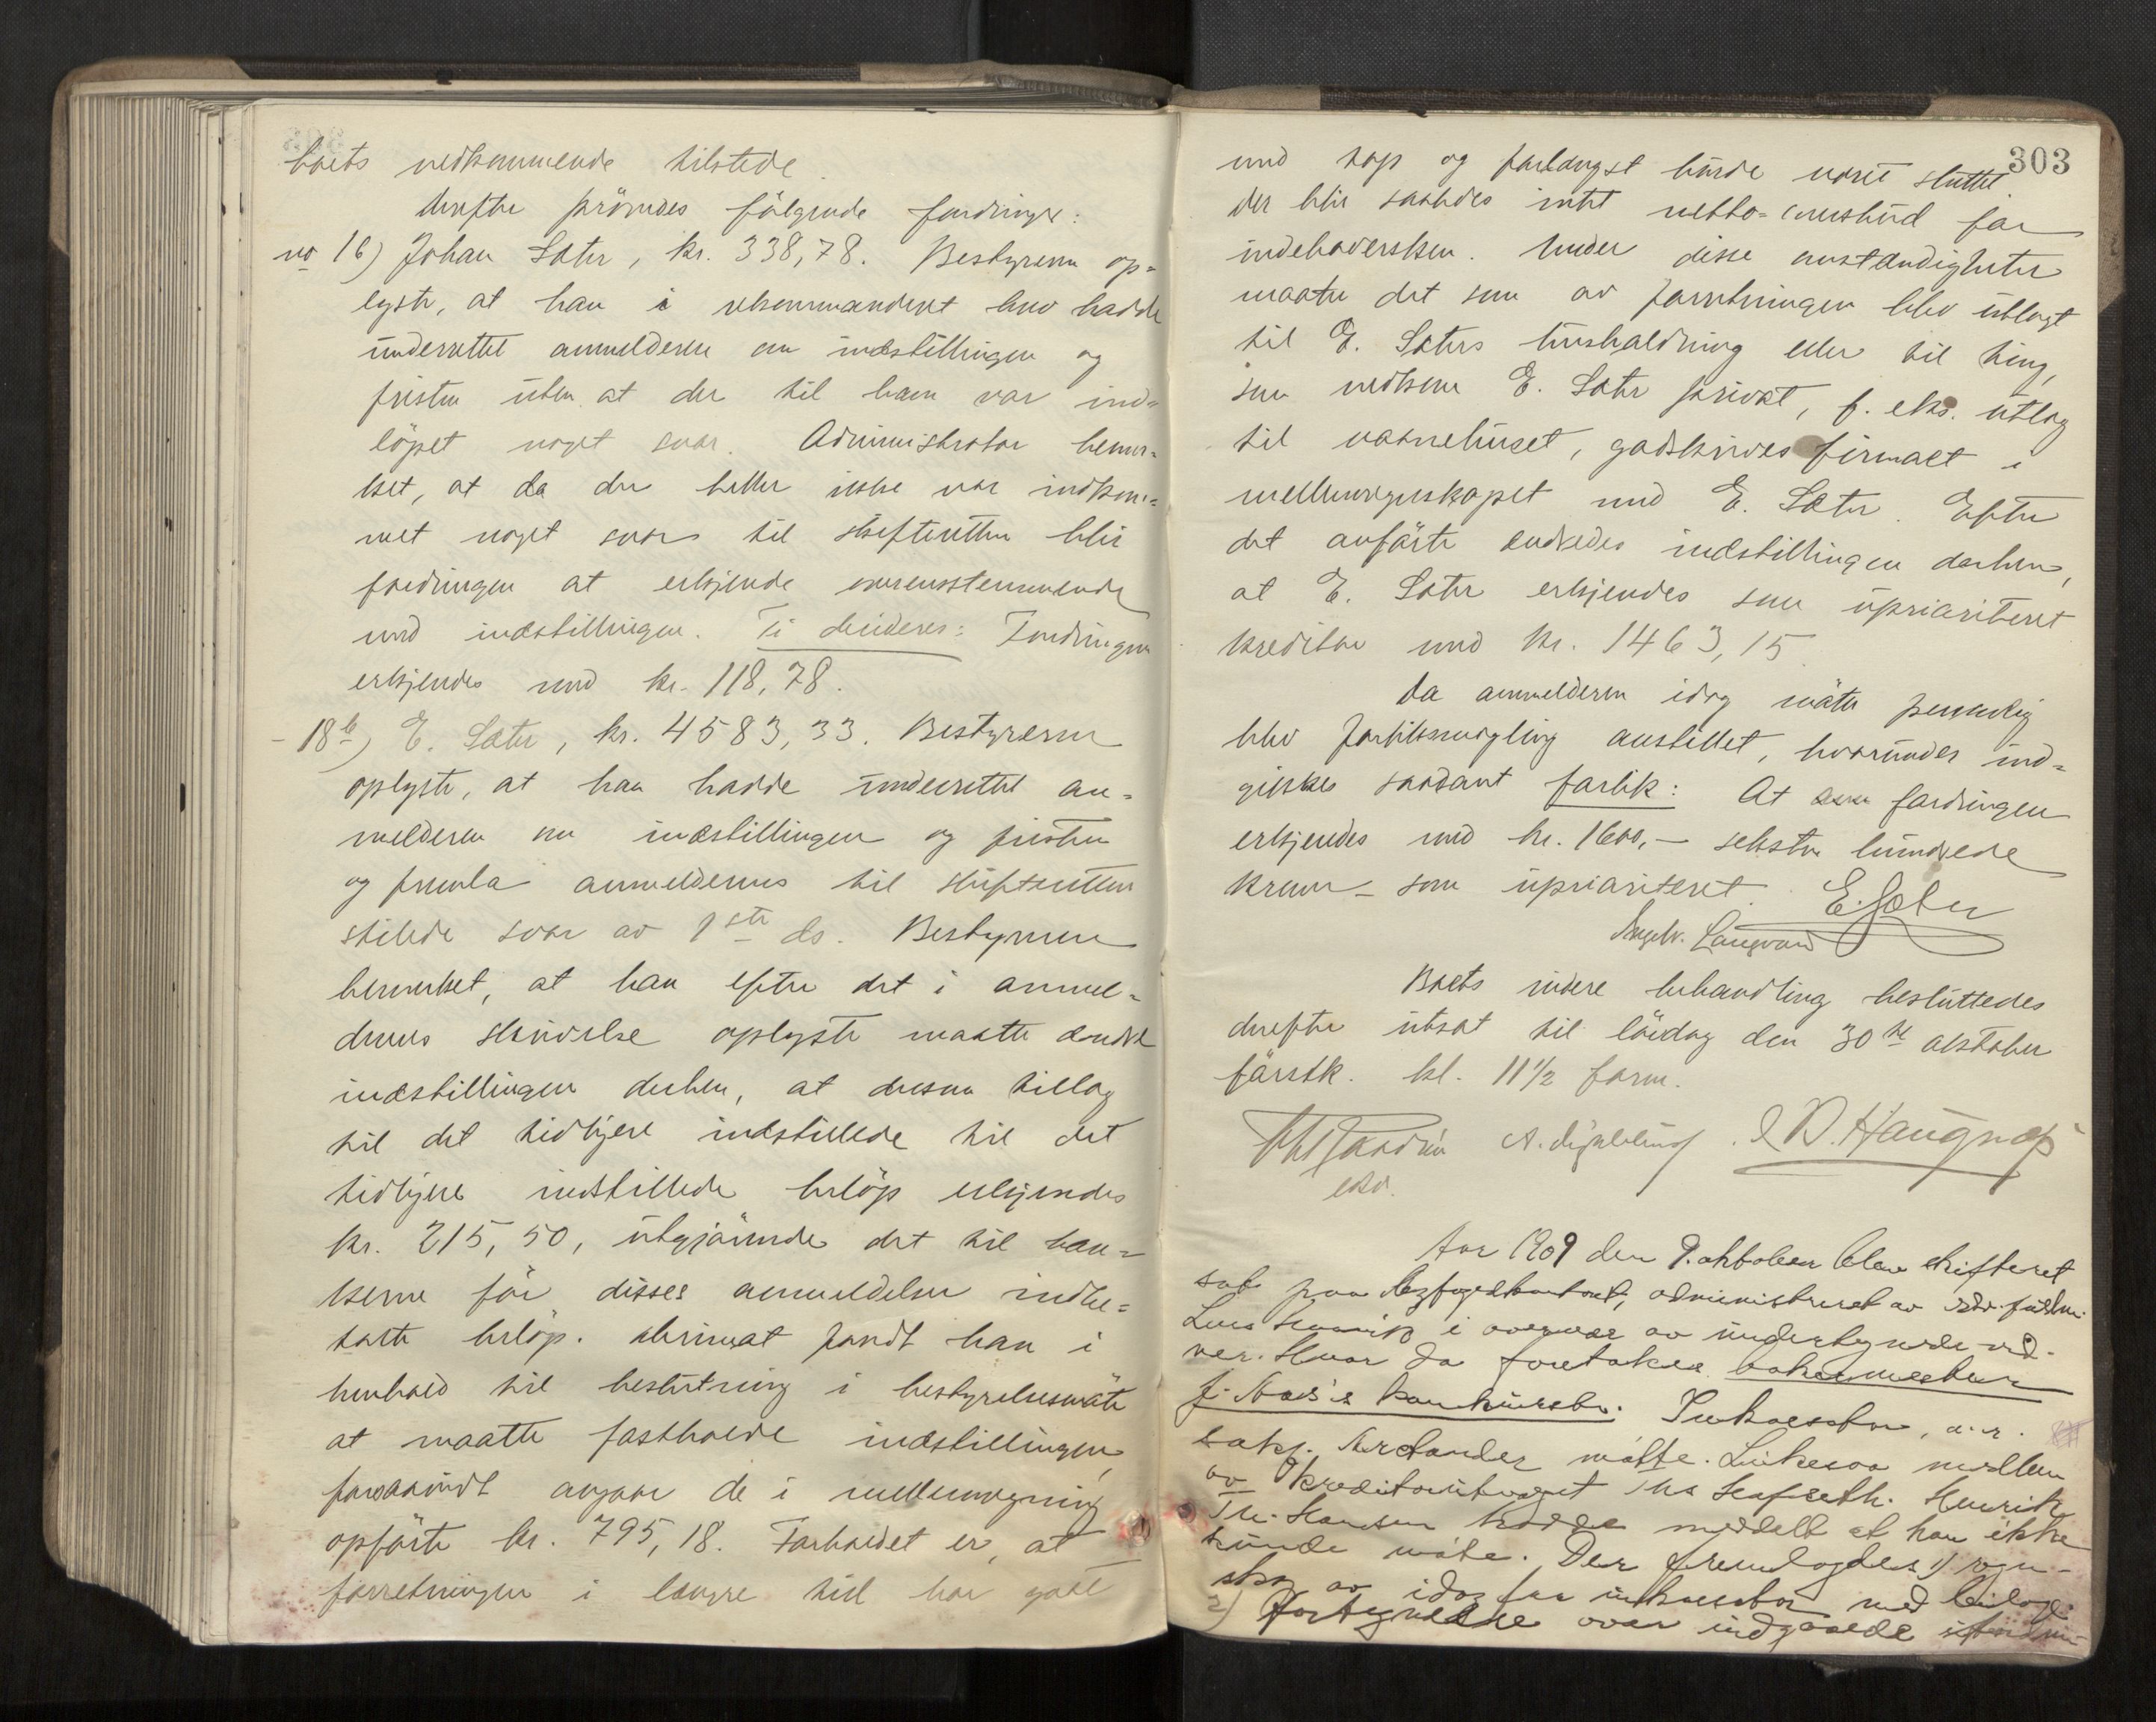 boets vedkommende tilstede.
Derefter prövedes fölgende fordringer:
no 16) Johan Sæter, kr. 338,78. Bestyreren op-
lyste, at han i rekommanderet brev hadde
underrettet anmelderen om indstillingen og
fristen uten at der til ham var ind-
löpet noget svar. Administrator bemer-
ket, at da der heller ikke var indkom-
met noget svar til skifteretten blir
fordringen at erkjende overensstemmende
med indstillingen. Ti decideres: Fordringen
erkjendes med kr. 118,78.
- 18b) E. Sæter, kr. 4583,33. Bestyreren
oplyste, at han hadde underrettet an-
melderen om indstillingen og fristen
og fremla anmelderens til skifteretten
stilede svar av 1ste ds. Bestyreren
bemerket, at han efter det i anmel-
derens skrivelse oplyste maatte ændre
indstillingen derhen, at desuten tillæg
til det tidligere indstillede til det
tidligere indstillede belöp erkjendes
kr. 215,50, utgjörende det til ban-
kerne för disses anmeldelser indbe-
talte belöp. Derimot fandt han i
henhold til beslutning i bestyrelsesmöte
at maatte fastholde indstillingen,
forsaavidt angaar de i mellemregning
opförte kr. 795,18. Forholdet er, at
forretningen i længre tid har gaat
303
med tap og forlængst burde været sluttet.
Der blir saaledes intet netto-overskud for
indehaversken. Under disse omstændigheter
maatte det som av forretningen blev utlagt
til E. Sæters husholdning eller til ting,
som vedkom E. Sæter privat, f. eks. utlæg
til vaanehuset, godskrives firmaet i
mellemregnskapet med E. Sæter. Efter
det anförte ændredes indstillingen derhen,
at E. Sæter erkjendes som uprioritert
kreditor med kr. 1463,15.
Da anmelderen idag möter personlig
blev forliksmægling anstillet, hvorunder ind-
gikkes saadant forlik: At fordringen
erkjendes med kr. 1600,- seksten hundrede
kroner - som uprioriteret. E. Sæter
Ingolv. Langvand
Boets videre behandling besluttedes
derefter utsat til löidag den 30te oktober
förstk. kl. 11 1/2 form.
I D. Haugnæs
Aar 1909 den 9. oktober blev skifteret
sat paa byfogedkontoret, administreret av
i overvær av undertegnede vid-
ner. Hvor da foretokes bakermester
konkursbo. Inkassator, o.r.
saks. mötte. Likesaa medlem
av kreditorutvalget
Th. Hansen hadde meddelt at han ikke
kunde möte. Der fremlagdes 1) regn-
skap av idag fra inkassator med bilag.
2) Fortegnelse over indgaaede